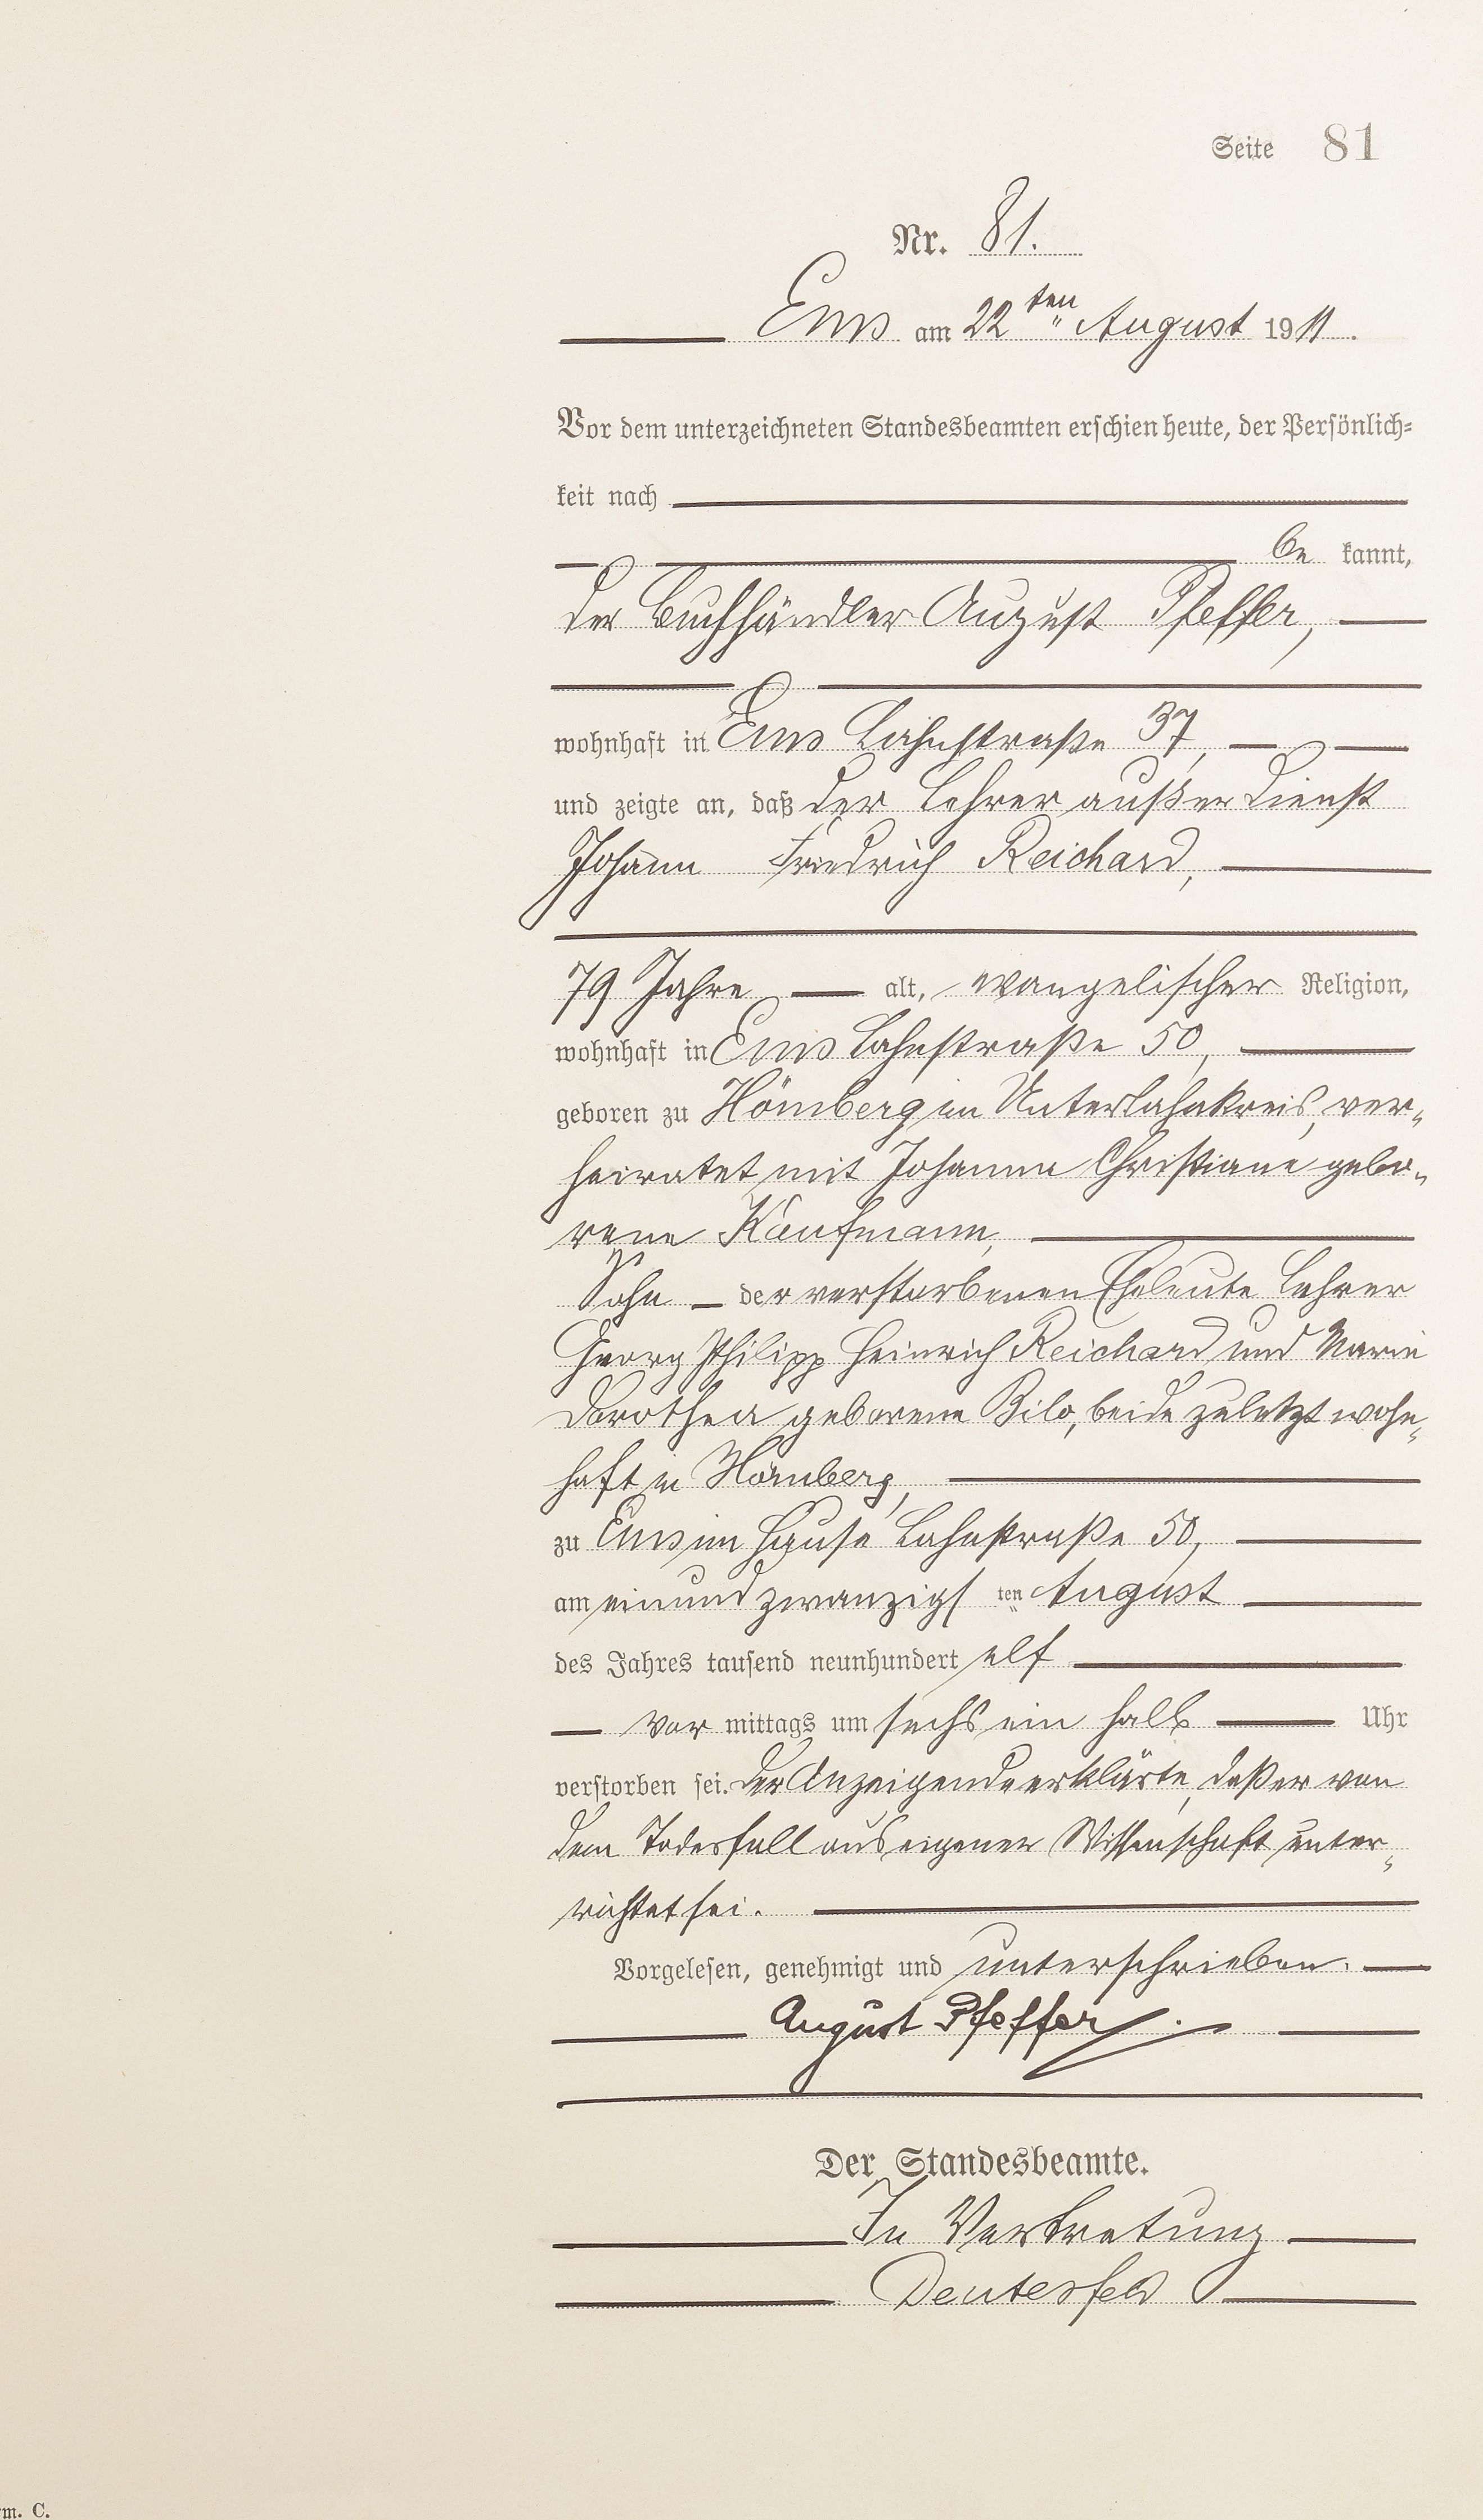 Seite 81
Nr. 81.
Ems am 22ten August 1911.
Vor dem unterzeichneten Standesbeamten erschien heute, der Persönlich-
keit nach
be kannt,
der Buchhändler August Pfeffer,
wohnhaft in Ems Lahnstraße 37,
und zeigte an, daß der Lehrer außer Dienst
Johann Friedrich Reichard,
79 Jahre alt, evangelischer Religion,
wohnhaft in Ems Lahnstraße 50,
geboren zu Hömberg im Unterlahnkreis, ver-
heiratet mit Johanna Christiane gebo-
rene Kaufmann,
Sohn der verstorbenen Eheleute Lehrer
Georg Philipp Heinrich Reichard und Marie
Dorothea geborene Bilo, beide zuletzt wohn-
haft in Hömberg,
zu Ems im Hause Lahnstraße 50,
am einundzwanzigsten August
des Jahres tausend neunhundert elf
vor mittags um sechs ein halb Uhr
verstorben sei. Der Anzeigende erklärte, daß er von
dem Todesfall aus eigener Wissenschaft unter-
richtet sei.
Vorgelesen, genehmigt und unterschrieben.
August Pfeffer.
Der Standesbeamte.
In Vertretung
Deutesfeld
rm. C.